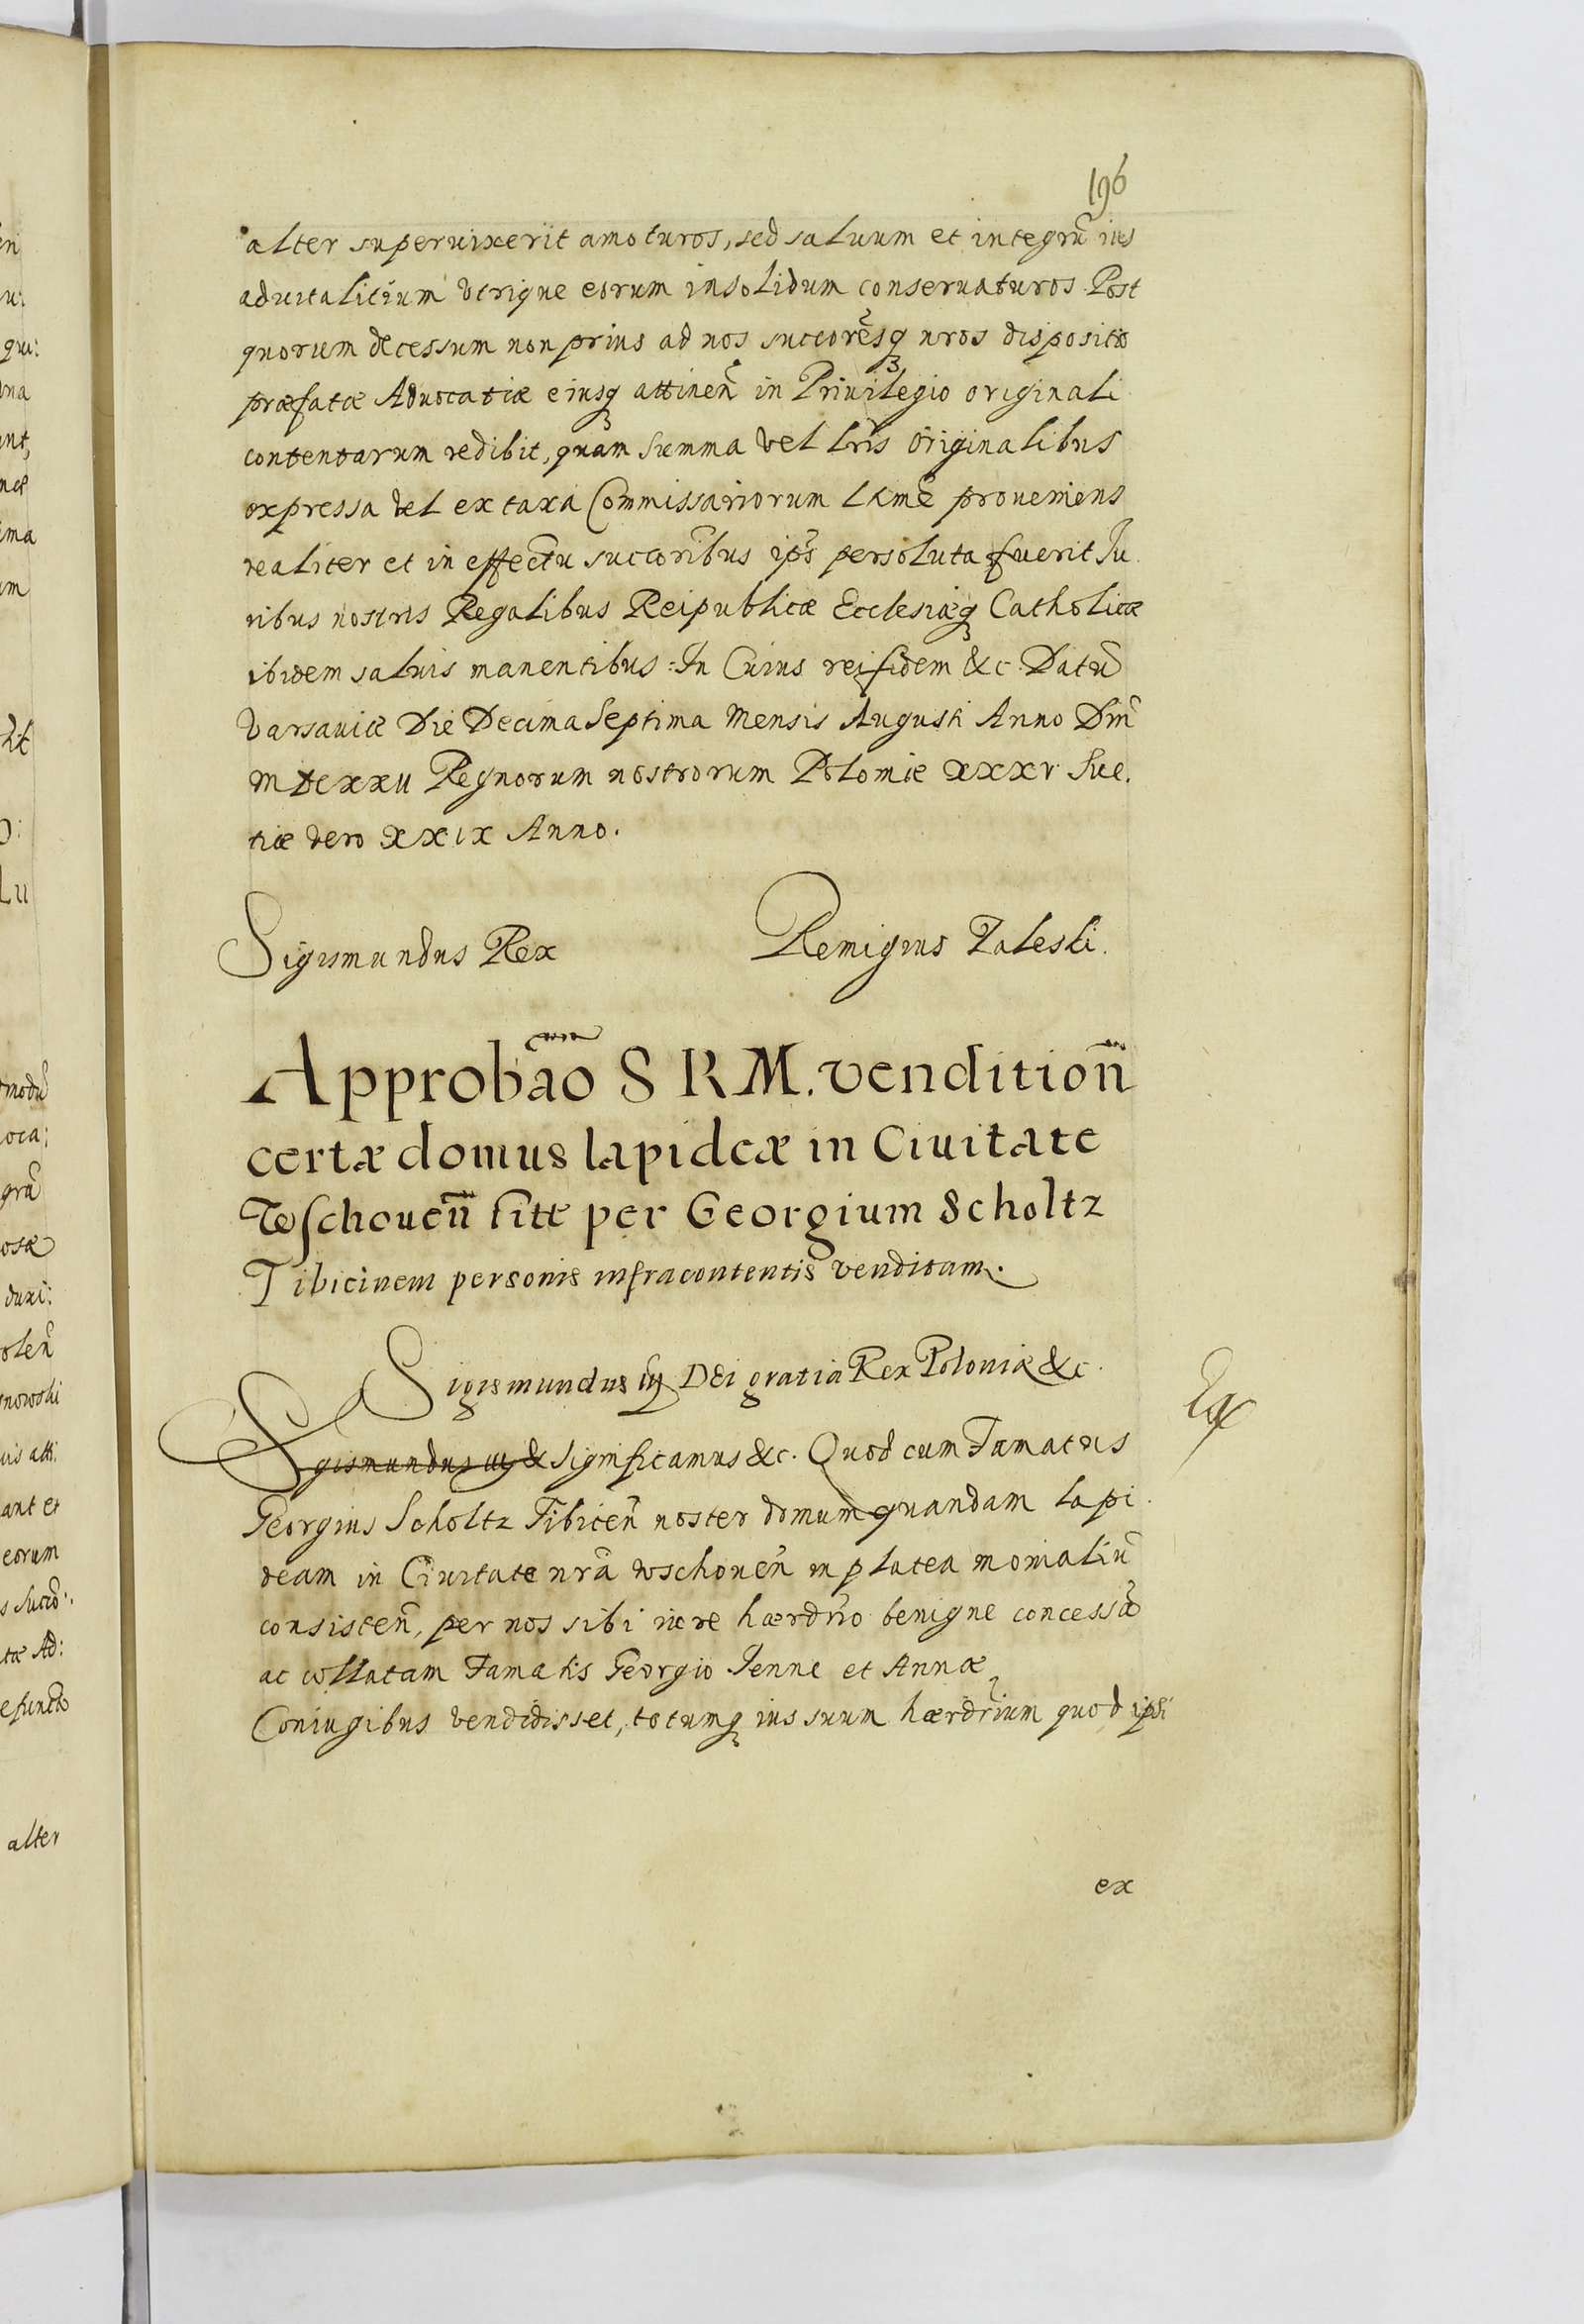 196
alter superuixerit amoturos, sed saluum et integrũ ius
aduitalitium vtrique eorum insolidum conseruaturos. Post
quorum decessum non prius ad nos succorẽsq nros dispositio
præfatæ Aduocatiæ eiusq attinen̄ in Priuilegio originali
contentarum redibit, quam summa vel lris originalibus
expressa vel ex taxa Commissariorum ltime proueniens
realiter et in effectu succoribus ips persoluta fuerit Iu
ribus nostris Regalibus Reipublicæ Ecclesiæq Catholicæ
ibidem saluis manentibus. In Cuius rei fidem &c. Datũ
Varsauiæ Die Decima Septima Mensis Augusti Anno Dni
MDCXXII Regnorum nostrorum Poloniæ XXXV Sue.
tiæ vero XXIX Anno.
Sigismundus Rex Remigius Zaleski.
Approbāo S R M. venditioñ
certæ domus lapideæ in Ciuitate
Wschoueñ sitæ per Georgium Scholtz
Tibicinem personis infracontentis venditam.
Sigismundus iij DEi gratia Rex Poloniæ &c.
Sigismundus iij & Significamus &c. Quod cum Famatus
Georgius Scholtz Tibicen̄ noster domum quandam lapi
deam in Ciuitate nrã Wschouen̄ in platea monialiũ
consisten̄, per nos sibi iure hærdrio benigne concessã
ac collatam Famatis Georgio Jenne et Annæ
Coniugibus vendidisset, totumq ius suum hærdrium quod ipsi
ex